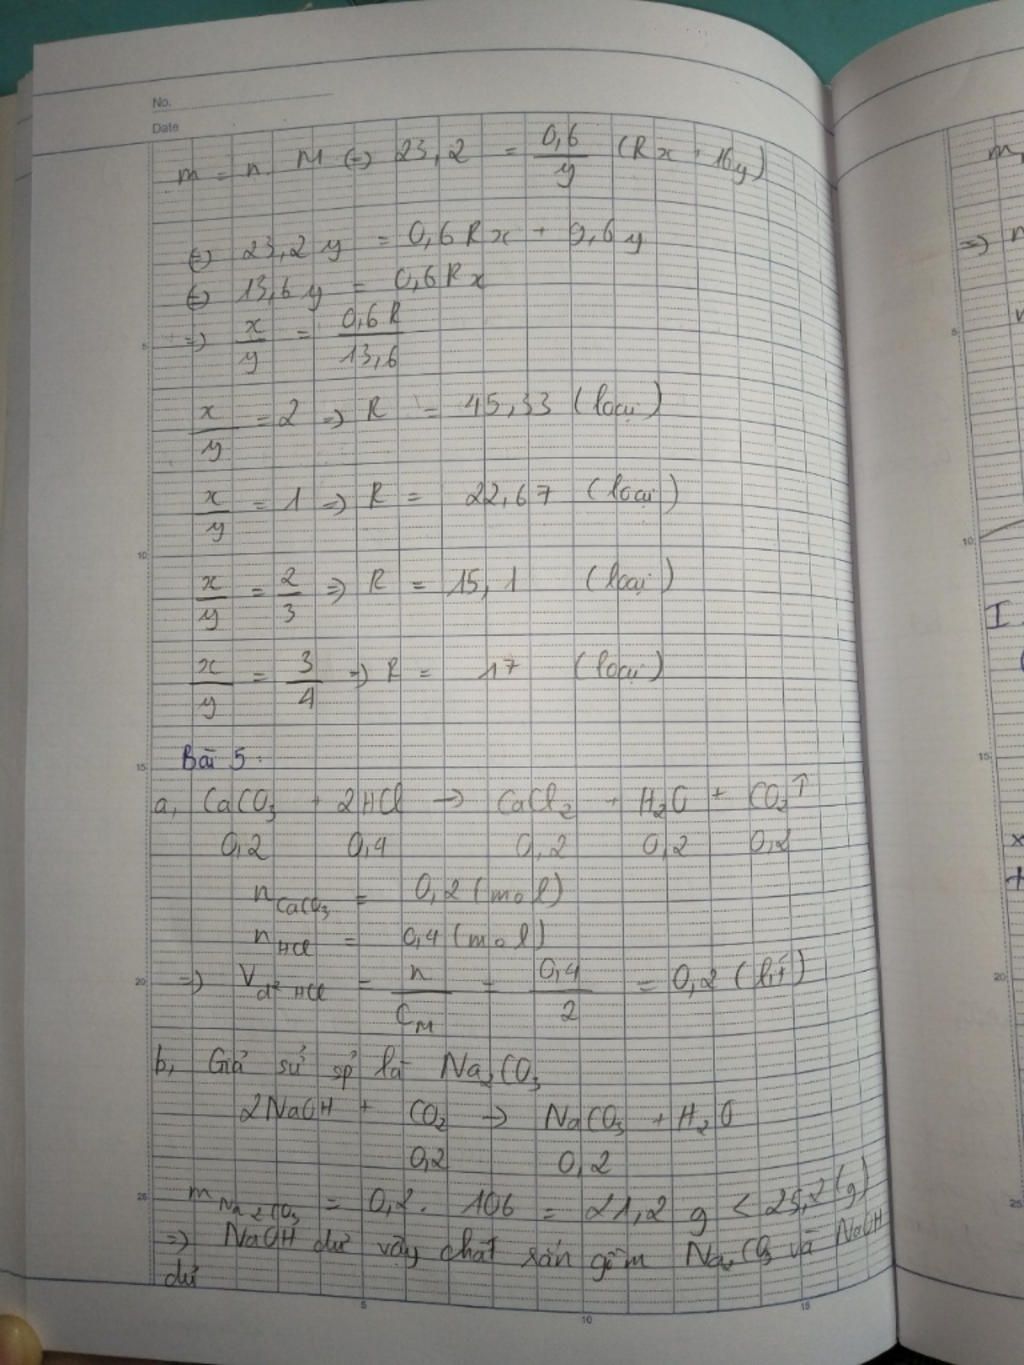 No.
Date
m = n. M (=) 23,2 = 0,6/y (Rx + 16y)
(=) 23,2 y = 0,6 Rx + 9,6 y
(=) 13,6 y = 0,6 Rx
=) x/y = 0,6 R/13,6
x/y = 2 =) R = 45,33 (loại)
x/y = 1 =) R = 22,67 (loại)
x/y = 2/3 =) R = 15,1 (loại)
x/y = 3/4 =) R = 17 (loại)
Bài 5:
a, CaCO₃ + 2HCl → CaCl₂ + H₂O + CO₂↑
0,2 0,4 0,2 0,2 0,2
n CaCO₃ = 0,2 (mol)
n HCl = 0,4 (mol)
=) V d² HCl = n/C_M = 0,4/2 = 0,2 (lít)
b, Giả sử sp là Na₂CO₃
2NaOH + CO₂ → NaCO₃ + H₂O
0,2 0,2
m Na₂CO₃ = 0,2. 106 = 21,2 g < 25,2 (g)
=) NaOH dư vậy chất rắn gồm Na₂CO₃ và NaOH
dư